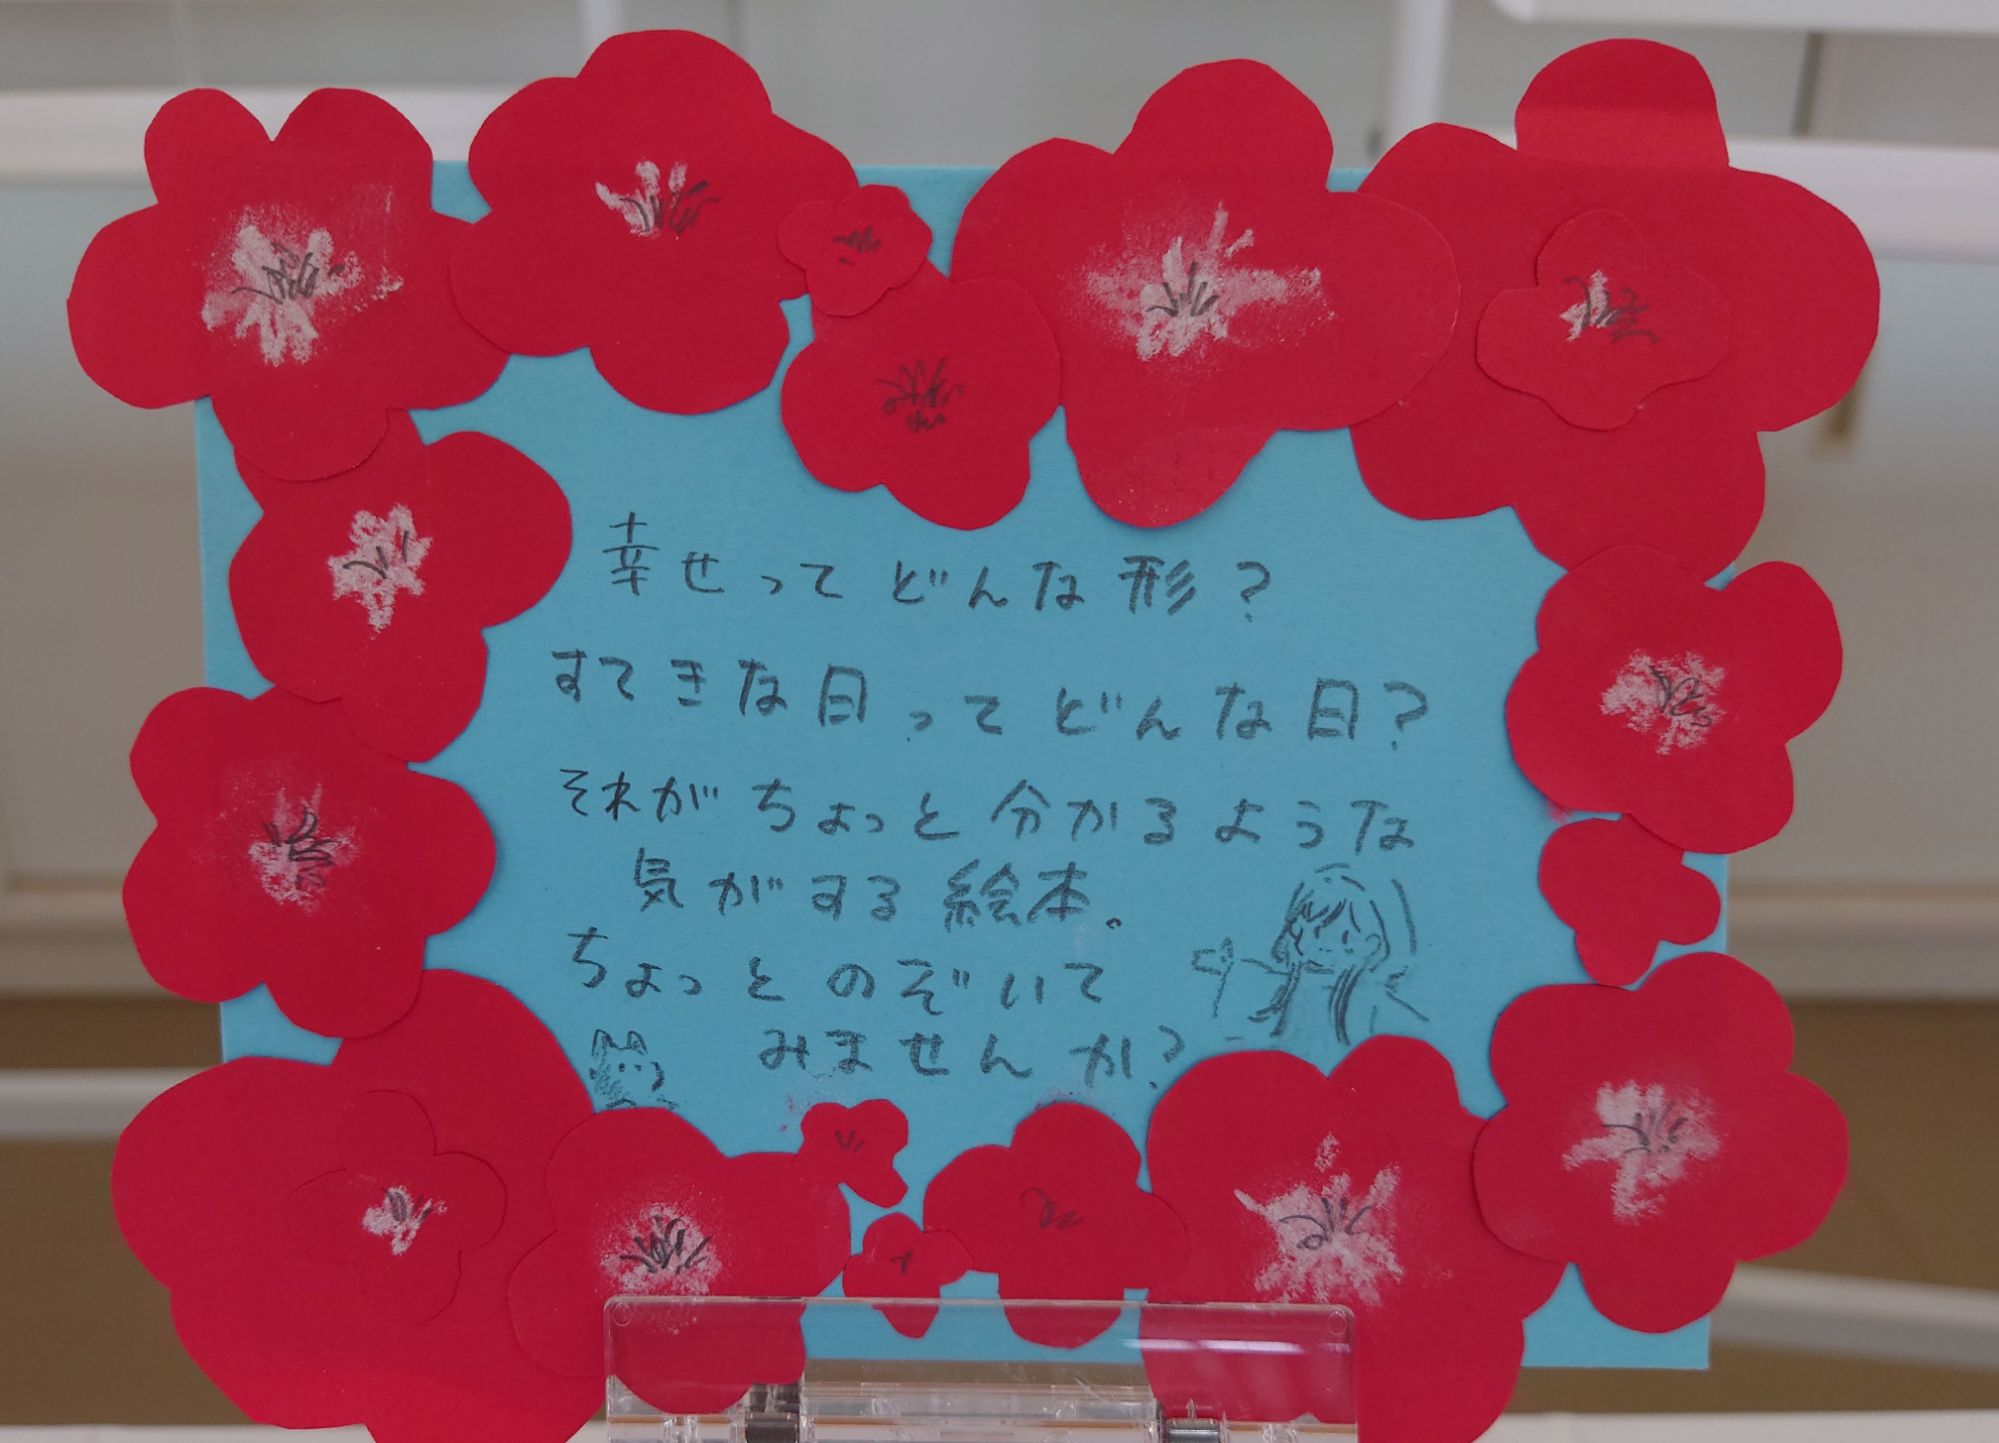 幸せってどんな形?
すてきな日ってどんな日?
それがちょっと分かるような
気がする絵本。
ちょっとのぞいて
みませんか?